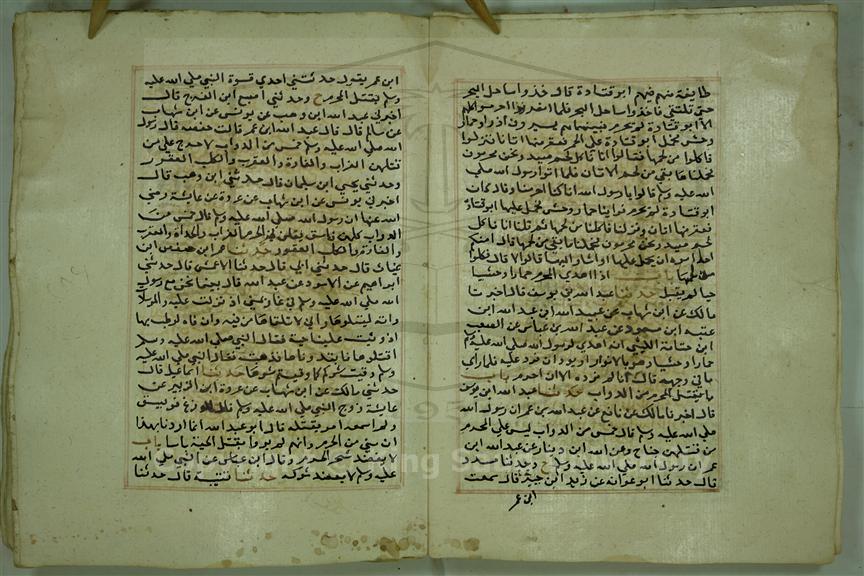 طايفة منهم فيهم ابو قتادة قال خذوا ساحل البحر
حتى نلتقي فاخذوا ساحل البحر فلما انصرفوا احرموا كلهم
الا ابو قتادة لم يحرم فبينما هم يسيرون اذ راوا حمر
وحش فحمل ابو قتادة على الحمر فعقر منها اتانا فنزلوا
فاكلوا من لحمها فقالوا انا ناكل لحم صيد ونحن محرمون
فحملنا ما بقي من لحم الاتان فلما اتوا رسول الله صلي
الله عليه وسلم قالوا يا رسول الله انا كنا احرمنا وقد كان
ابو قتادة لم يحرم فراينا حمر وحش فحمل عليها ابو قتادة
فعقر منها اتانا فنزلنا فاكلنا من لحمها ثم قلنا انا ناكل
لحم صيد ونحن محرمون فحملنا ما بقي من لحمها قال امنكم
احد امره ان يحمل عليها او اشار اليها قالوا لا قال فكلوا
من لحمها باب اذا اهدي للمحرم حمارا وحشيا
حيا لم يقبل حدثنا عبد الله بن يوسف قال اخبرنا
مالك عن ابن شهاب عن عبيد الله ابن عبد الله ابن
عتبة ابن مسعود عن عبد الله بن عباس عن الصعب
ابن جثامة الليثي انه اهدي لرسول الله صلي الله عليه وسلم
حمارا وحشيا وهو بالابوا او بودان فرد عليه فلما راي
ما في وجهه قال انا لم نرده الا انا حرم باب
ما يقتل المحرم من الدواب حدثنا عبد الله ابن يوسف
قال اخبرنا مالك عن نافع عن عبد الله بن عمر ان رسول الله
صلي الله عليه وسلم قال خمس من الدواب ليس علي المحرم
في قتلهن جناح وعن عبد الله ابن دينار عن عبد الله ابن
عمر ان رسول الله صلي الله عليه وسلم ح وحدثنا مسدد
قال حدثنا ابو عوانة عن زيد ابن جبير قال سمعت
ابن عمر
ابن عمر يقول حدثتني احدي نسوة النبي صلي الله عليه
وسلم يقتل المحرم ح وحدثني اصبغ ابن الفرج قال
اخبرني عبد الله ابن وهب عن يونس عن ابن شهاب
عن سالم قال قال عبد الله ابن عمر قالت حفصة قال رسول
الله صلي الله عليه وسلم خمس من الدواب لا حرج علي من
قتلهن الغراب والفارة والعقرب والكلب العقور
وحدثني يحيي ابن سليمان قال حدثني ابن وهب قال
اخبرني يونس عن ابن شهاب عن عروة عن عائشة رضي
الله عنها ان رسول الله صلي الله عليه وسلم قال خمس من
الدواب كلهن فاسق يقتلن في الحرم الغراب والحداة والعقرب
والفارة والكلب العقور حدثنا عمر ابن حفص ابن
غياث قال حدثني ابي قال حدثنا الاعمش قال حدثني
ابراهيم عن الاسود عن عبد الله قال بينما نحن مع رسول
الله صلي الله عليه وسلم في غار بمني اذ نزلت عليه والمرسلات
وانه ليتلوها واني لاتلقاها من فيه وان فاه لرطب بها
اذ وثبت علينا حية فقال النبي صلي الله عليه وسلم
اقتلوها فابتدرناها فذهبت فقال النبي صلي الله عليه
وسلم وقيت شركم كما وقيتم شرها حدثنا اسماعيل قال
حدثني مالك عن ابن شهاب عن عروة ابن الزبير عن
عايشة زوج النبي صلي الله عليه وسلم قال للوزغ فويسق
ولم اسمعه امر بقتله قال ابو عبد الله انما اردنا بهذا
ان مني من الحرم وانهم لم يروا بقتل الحية باسا باب
لا يعضد شجر الحرم وقال ابن عباس عن النبي صلي الله
عليه وسلم لا يعضد شوكه حدثنا قتيبة قال حدثنا